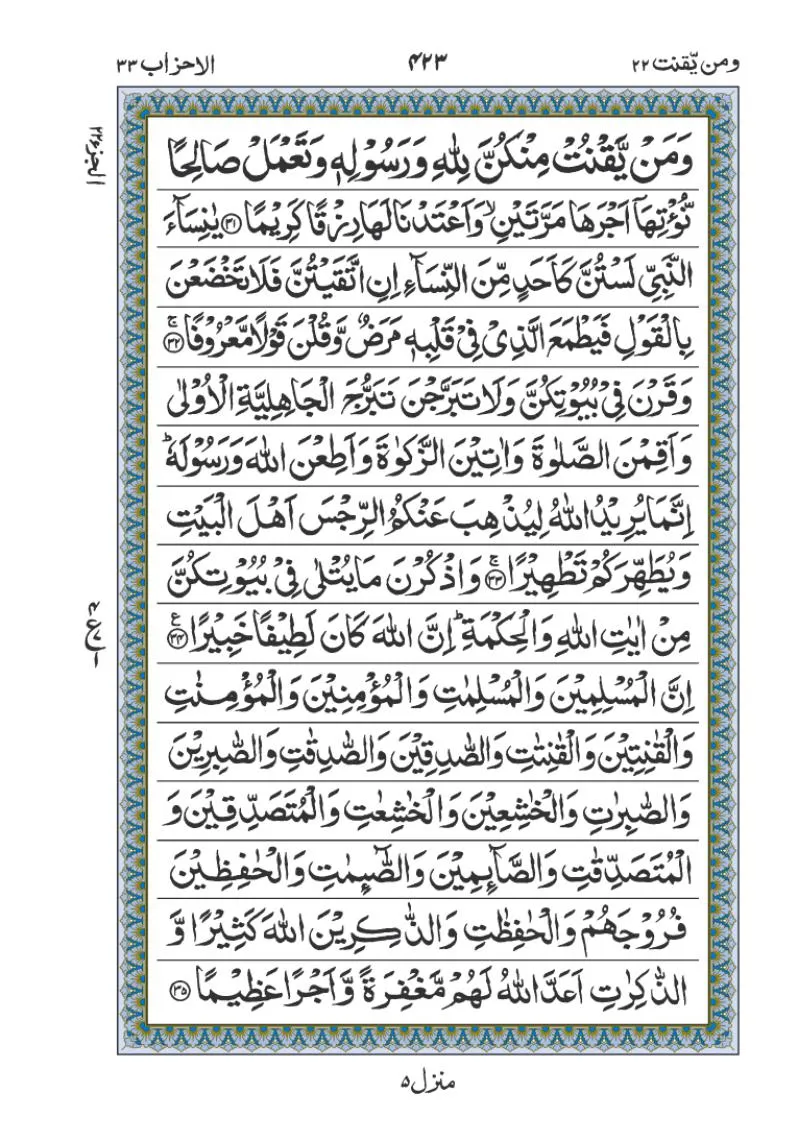 ومن یّقنت ۲۲
۴۲۳
الاحزاب ۳۳
وَمَنْ يَّقْنُتْ مِنْكُنَّ لِلّٰهِ وَرَسُوْلِهٖ وَتَعْمَلْ صَالِحًا
نُّؤْتِهَاۤ اَجْرَهَا مَرَّتَيْنِ ۙ وَاَعْتَدْنَا لَهَا رِزْقًا كَرِيْمًا ﴿۳۱﴾ يٰنِسَآءَ
النَّبِيِّ لَسْتُنَّ كَاَحَدٍ مِّنَ النِّسَآءِ اِنِ اتَّقَيْتُنَّ فَلَا تَخْضَعْنَ
بِالْقَوْلِ فَيَطْمَعَ الَّذِىْ فِىْ قَلْبِهٖ مَرَضٌ وَّقُلْنَ قَوْلًا مَّعْرُوْفًا ۚ﴿۳۲﴾
وَقَرْنَ فِىْ بُيُوْتِكُنَّ وَلَا تَبَرَّجْنَ تَبَرُّجَ الْجَاهِلِيَّةِ الْاُوْلٰى
وَاَقِمْنَ الصَّلٰوةَ وَاٰتِيْنَ الزَّكٰوةَ وَاَطِعْنَ اللّٰهَ وَرَسُوْلَهٗ ؕ
اِنَّمَا يُرِيْدُ اللّٰهُ لِيُذْهِبَ عَنْكُمُ الرِّجْسَ اَهْلَ الْبَيْتِ
وَيُطَهِّرَكُمْ تَطْهِيْرًا ۚ﴿۳۳﴾ وَاذْكُرْنَ مَا يُتْلٰى فِىْ بُيُوْتِكُنَّ
مِنْ اٰيٰتِ اللّٰهِ وَالْحِكْمَةِ ؕ اِنَّ اللّٰهَ كَانَ لَطِيْفًا خَبِيْرًا ﴿۳۴﴾ ع
اِنَّ الْمُسْلِمِيْنَ وَالْمُسْلِمٰتِ وَالْمُؤْمِنِيْنَ وَالْمُؤْمِنٰتِ
وَالْقٰنِتِيْنَ وَالْقٰنِتٰتِ وَالصّٰدِقِيْنَ وَالصّٰدِقٰتِ وَالصّٰبِرِيْنَ
وَالصّٰبِرٰتِ وَالْخٰشِعِيْنَ وَالْخٰشِعٰتِ وَالْمُتَصَدِّقِيْنَ وَ
الْمُتَصَدِّقٰتِ وَالصَّآئِمِيْنَ وَالصّٰٓئِمٰتِ وَالْحٰفِظِيْنَ
فُرُوْجَهُمْ وَالْحٰفِظٰتِ وَالذّٰكِرِيْنَ اللّٰهَ كَثِيْرًا وَّ
الذّٰكِرٰتِ اَعَدَّ اللّٰهُ لَهُمْ مَّغْفِرَةً وَّاَجْرًا عَظِيْمًا ﴿۳۵﴾
الجزء ۲۲
منزل ۵